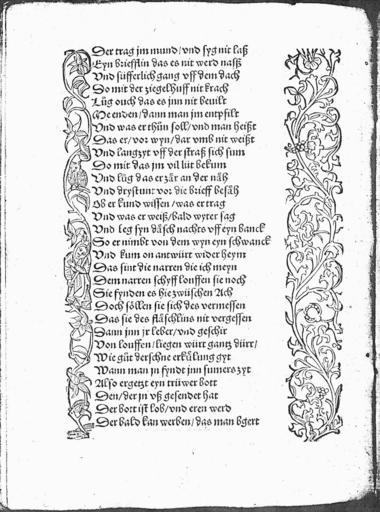 Der trag jm mund/vnd syg nit laß
Eyn briefflin das es nit werd nasß
Vnd süfferlich gang vff dem dach
So mit der ziegelhuff nit krach
Lůg ouch das es jnn nit beuilt
Me enden/dann man jm entpfilt
Vnd was er thůn soll/vnd man heißt
Das er/vor wyn/dar vmb nit weißt
Vnd langzyt vff der straß sich sum
Do mit das jm vil lüt bekum
Vnd lůg das er zär an der näh
Vnd drystunt vor die brieff besäh
Ob er kund wissen/was er trag
Vnd was er weiß/bald wyter sag
Vnd leg syn däsch nachts vff eyn banck
So er nimbt von dem wyn eyn schwanck
Vnd kum on antwürt wider heym
Das sint die narren die ich meyn
Dem narren schyff louffen sie noch
Sie fynden es hie zwüschen Ach
Doch söllen sie sich des vermessen
Das sie des fläschlins nit vergessen
Dann jnn jr leber/vnd geschir
Von louffen/liegen würt gantz dürr/
Wie gůt der schne erkůlung gyt
Wann man jn fyndt jnn sumers zyt
Also ergetzt eyn trüwer bott
Den/der jn vß gesendet hat
Der bott ist lob/vnd eren werd
Der bald kan werben/das man bgert